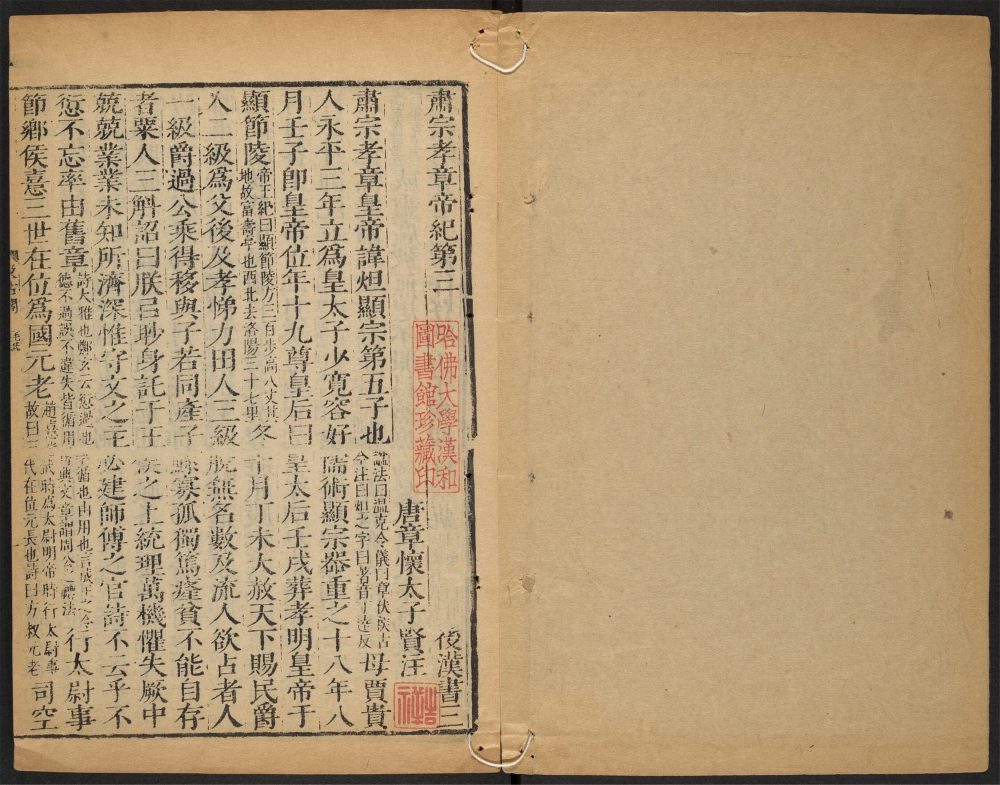 肅宗孝章帝紀第三 後漢書三
唐章懷太子賢注
肅宗孝章皇帝諱炟顯宗第五子也 謚法曰溫克令儀曰章伏侯古今注曰炟之字曰著音丁達反 母賈貴
人永平三年立爲皇太子少寬容好儒術顯宗器重之十八年八
月壬子卽皇帝位年十九尊皇后曰皇太后壬戌葬孝明皇帝于
顯節陵 帝王紀曰顯節陵方三百步高八丈其地故富壽亭也西北去洛陽三十七里 冬十月丁未大赦天下賜民爵
人二級爲父後及孝悌力田人三級脫無名數及流人欲占者人
一級爵過公乘得移與子若同產子鰥寡孤獨篤癃貧不能自存
者粟人三斛詔曰朕㠯眇身託于王侯之上統理萬機懼失厥中
兢兢業業未知所濟深惟守文之主必建師傅之官詩不云乎不
愆不忘率由舊章 詩大雅也鄭玄云愆過也率循也由用也言成王之令德不過誤不違失皆循用舊典文章謂周公之禮法 行太尉事
節鄉侯憙三世在位爲國元老 趙憙光武時爲太尉明帝時行太尉事故曰三代在位元長也詩曰方叔元老 司空
哈佛大學漢和
圖書館珍藏印